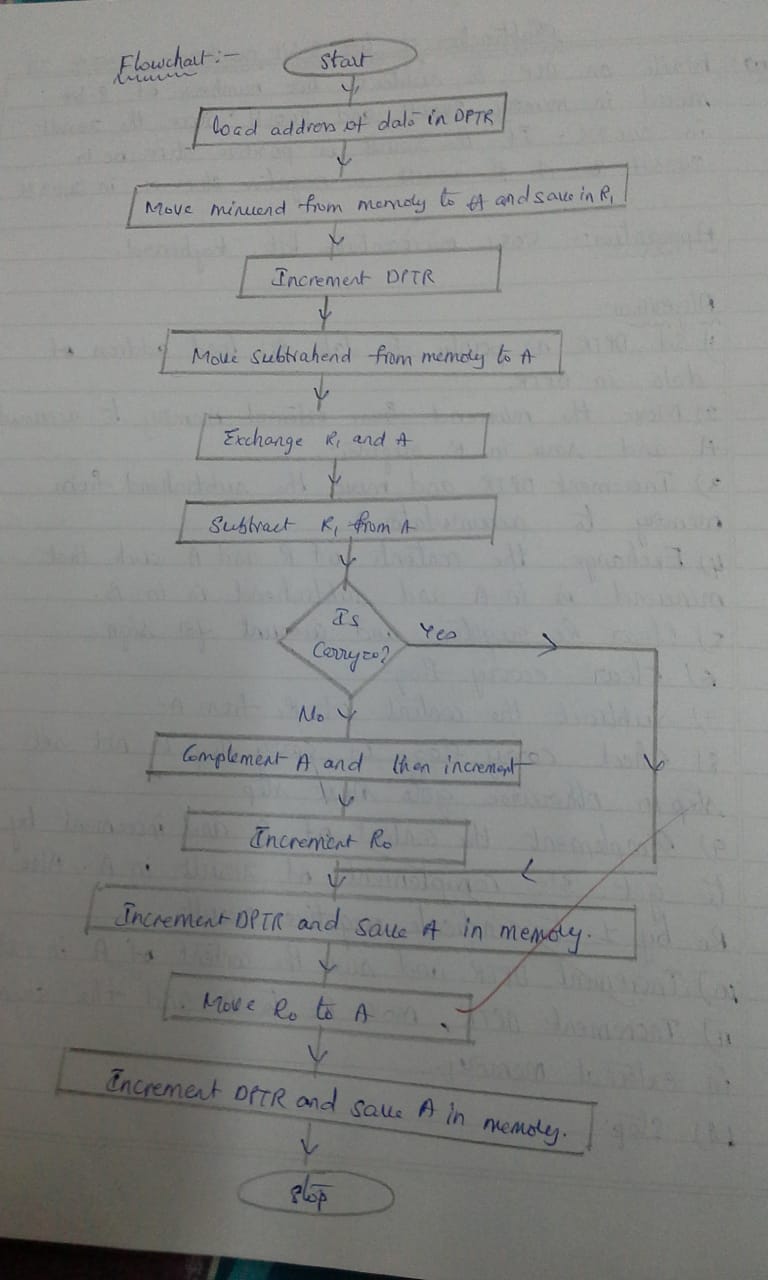 Flowchart :-
Start
Load address of data in DPTR
Move minuend from memory to A and save in R1
Increment DPTR
Move subtrahend from memory to A
Exchange R1 and A
Subtract R1 from A
Is
Carry=0?
Yes
No
Complement A and then increment
Increment R0
Increment DPTR and save A in memory.
Move R0 to A
Increment DPTR and save A in memory.
Stop